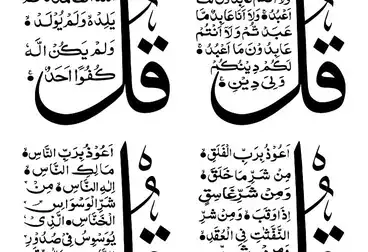 قُلْ
اَعْبُدُ وَلَا اَنَا عَابِدٌ مَا
عَبَدْتُمْ وَلَا اَنْتُمْ
عَابِدُونَ مَا اَعْبُدُ
لَكُمْ دِينُكُمْ
وَلِيَ دِيْنِ
قُلْ
يَلِدْ وَلَمْ يُوْلَدْ
وَلَمْ يَكُنْ لَهُ
كُفُوًا اَحَدٌ
قُلْ
اَعُوْذُ بِرَبِّ الْفَلَقِ
مِنْ شَرِّ مَا خَلَقَ
وَمِنْ شَرِّ غَاسِقٍ
اِذَا وَقَبَ وَمِنْ شَرِّ
النَّفّٰثٰتِ فِي الْعُقَدِ
قُلْ
اَعُوْذُ بِرَبِّ النَّاسِ
مَالِكِ النَّاسِ
اِلٰهِ النَّاسِ مِنْ
شَرِّ الْوَسْوَاسِ
الْخَنَّاسِ الَّذِي
يُوَسْوِسُ فِي صُدُوْرِ